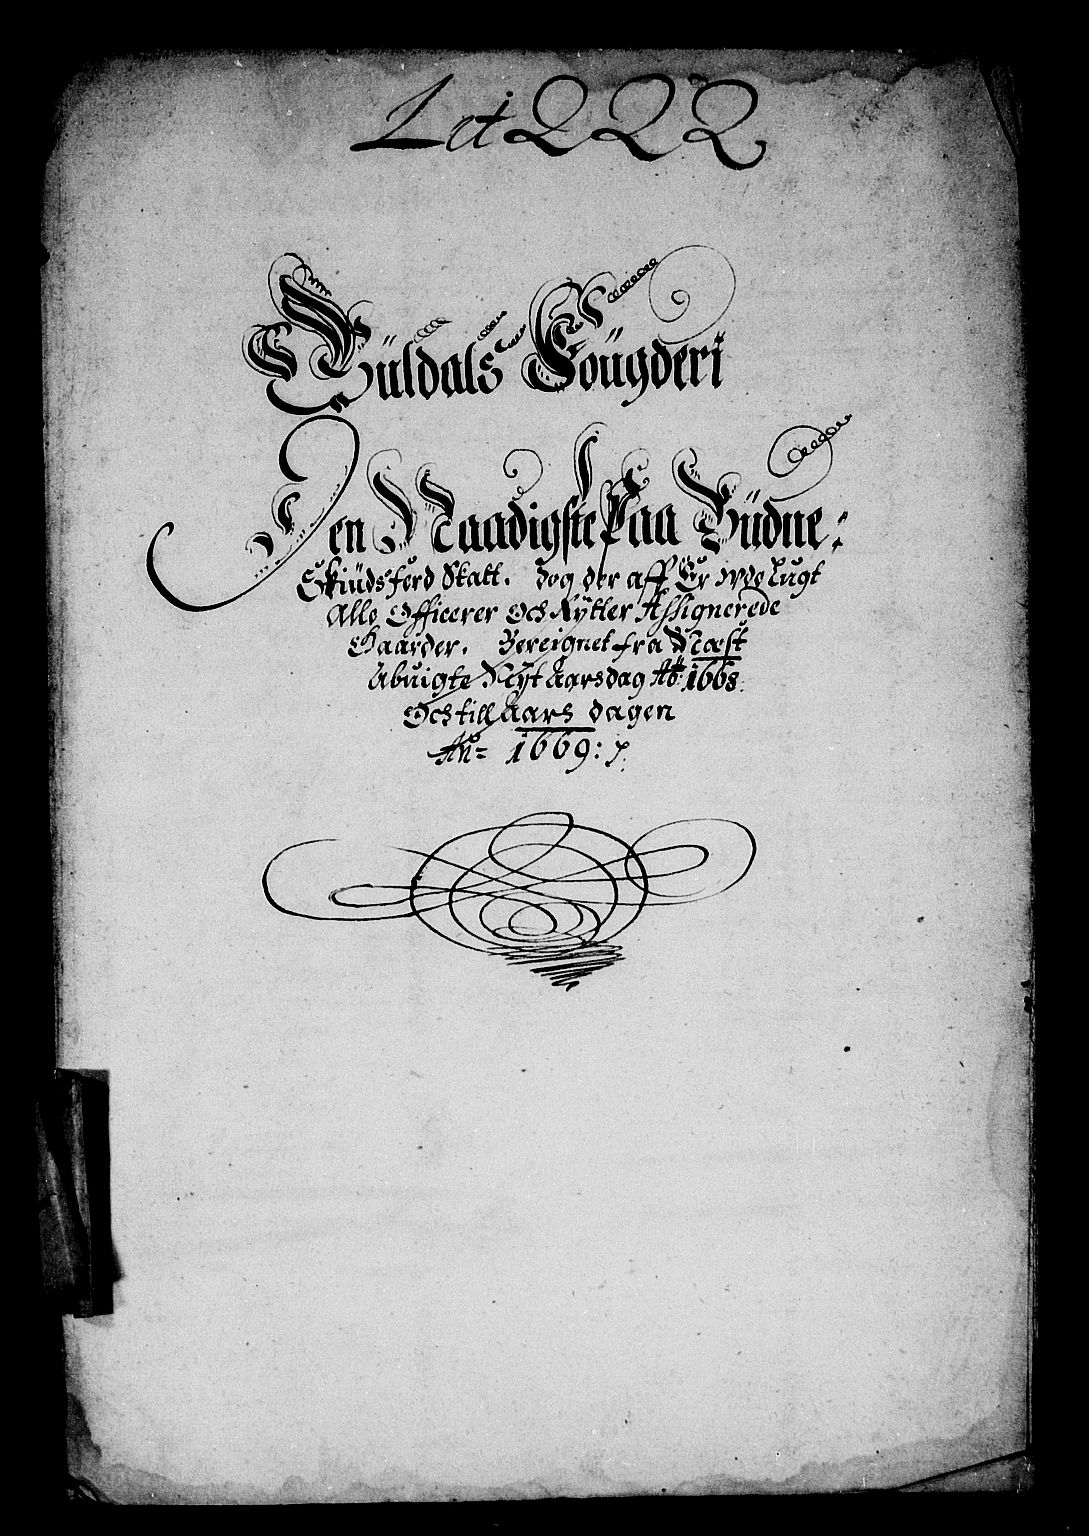 Let QQQ
Güldals Fougderi
Den Naadigste Paa Büdne:
Skiüdsferd Skatt. Dog der aff Er wdelugt
Alle Officerer Och Rytter Assignerede
Gaarder. Bereignet fra Næst
Abuigte Nyt Aarsdag Ao: 1668.
Och till Aars dagen
An= 1669: